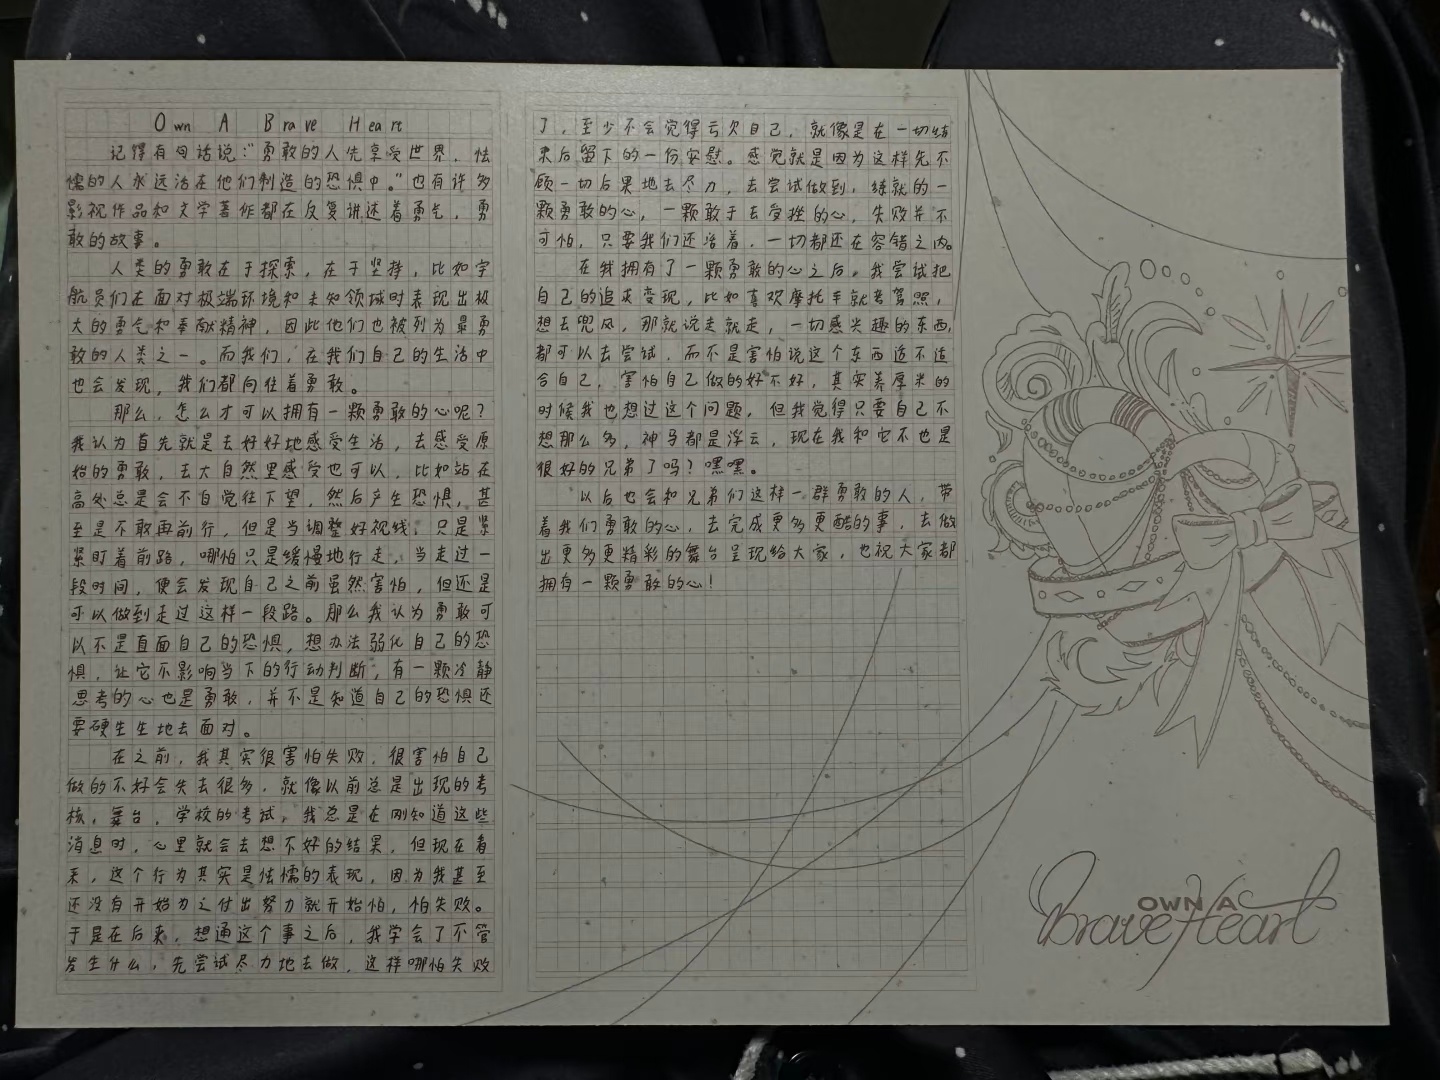 Own A Brave Heart
记得有句话说:"勇敢的人先享受世界,怯
懦的人永远活在他们制造的恐惧中。"也有许多
影视作品和文学著作都在反复讲述着勇气,勇
敢的故事。
人类的勇敢在于探索,在于坚持,比如宇
航员们在面对极端环境和未知领域时表现出极
大的勇气和奉献精神,因此他们也被列为最勇
敢的人类之一。而我们,在我们自己的生活中
也会发现,我们都向往着勇敢。
那么,怎么才可以拥有一颗勇敢的心呢?
我认为首先就是去好好地感受生活,去感受原
始的勇敢,去大自然里感受也可以,比如站在
高处总是会不自觉往下望,然后产生恐惧,甚
至是不敢再前行,但是当调整好视线,只是紧
紧盯着前路,哪怕只是缓慢地行走,当走过一
段时间,便会发现自己之前虽然害怕,但还是
可以做到走过这样一段路。那么我认为勇敢可
以不是直面自己的恐惧,想办法弱化自己的恐
惧,让它不影响当下的行动判断,有一颗冷静
思考的心也是勇敢,并不是知道自己的恐惧还
要硬生生地去面对。
在之前,我其实很害怕失败,很害怕自己
做的不好会失去很多,就像以前总是出现的考
核,舞台,学校的考试,我总是在刚知道这些
消息时,心里就会去想不好的结果,但现在看
来,这个行为其实是怯懦的表现,因为我甚至
还没有开始为之付出努力就开始怕,怕失败。
于是在后来,想通这个事之后,我学会了不管
发生什么,先尝试尽力地去做,这样哪怕失败
了,至少不会觉得亏欠自己,就像是在一切结
束后留下的一份安慰。感觉就是因为这样先不
顾一切后果地去尽力,去尝试做到,练就的一
颗勇敢的心,一颗敢于去受挫的心,失败并不
可怕,只要我们还活着,一切都还在容错之内。
在我拥有了一颗勇敢的心之后,我尝试把
自己的追求变现,比如喜欢摩托车就考驾照,
想去兜风,那就说走就走,一切感兴趣的东西,
都可以去尝试,而不是害怕说这个东西适不适
合自己,害怕自己做的好不好,其实养厚米的
时候我也想过这个问题,但我觉得只要自己不
想那么多,神马都是浮云,现在我和它不也是
很好的兄弟了吗?嘿嘿。
以后也会和兄弟们这样一群勇敢的人,带
着我们勇敢的心,去完成更多更酷的事,去做
出更多更精彩的舞台呈现给大家,也祝大家都
拥有一颗勇敢的心!
OWN A
Brave Heart